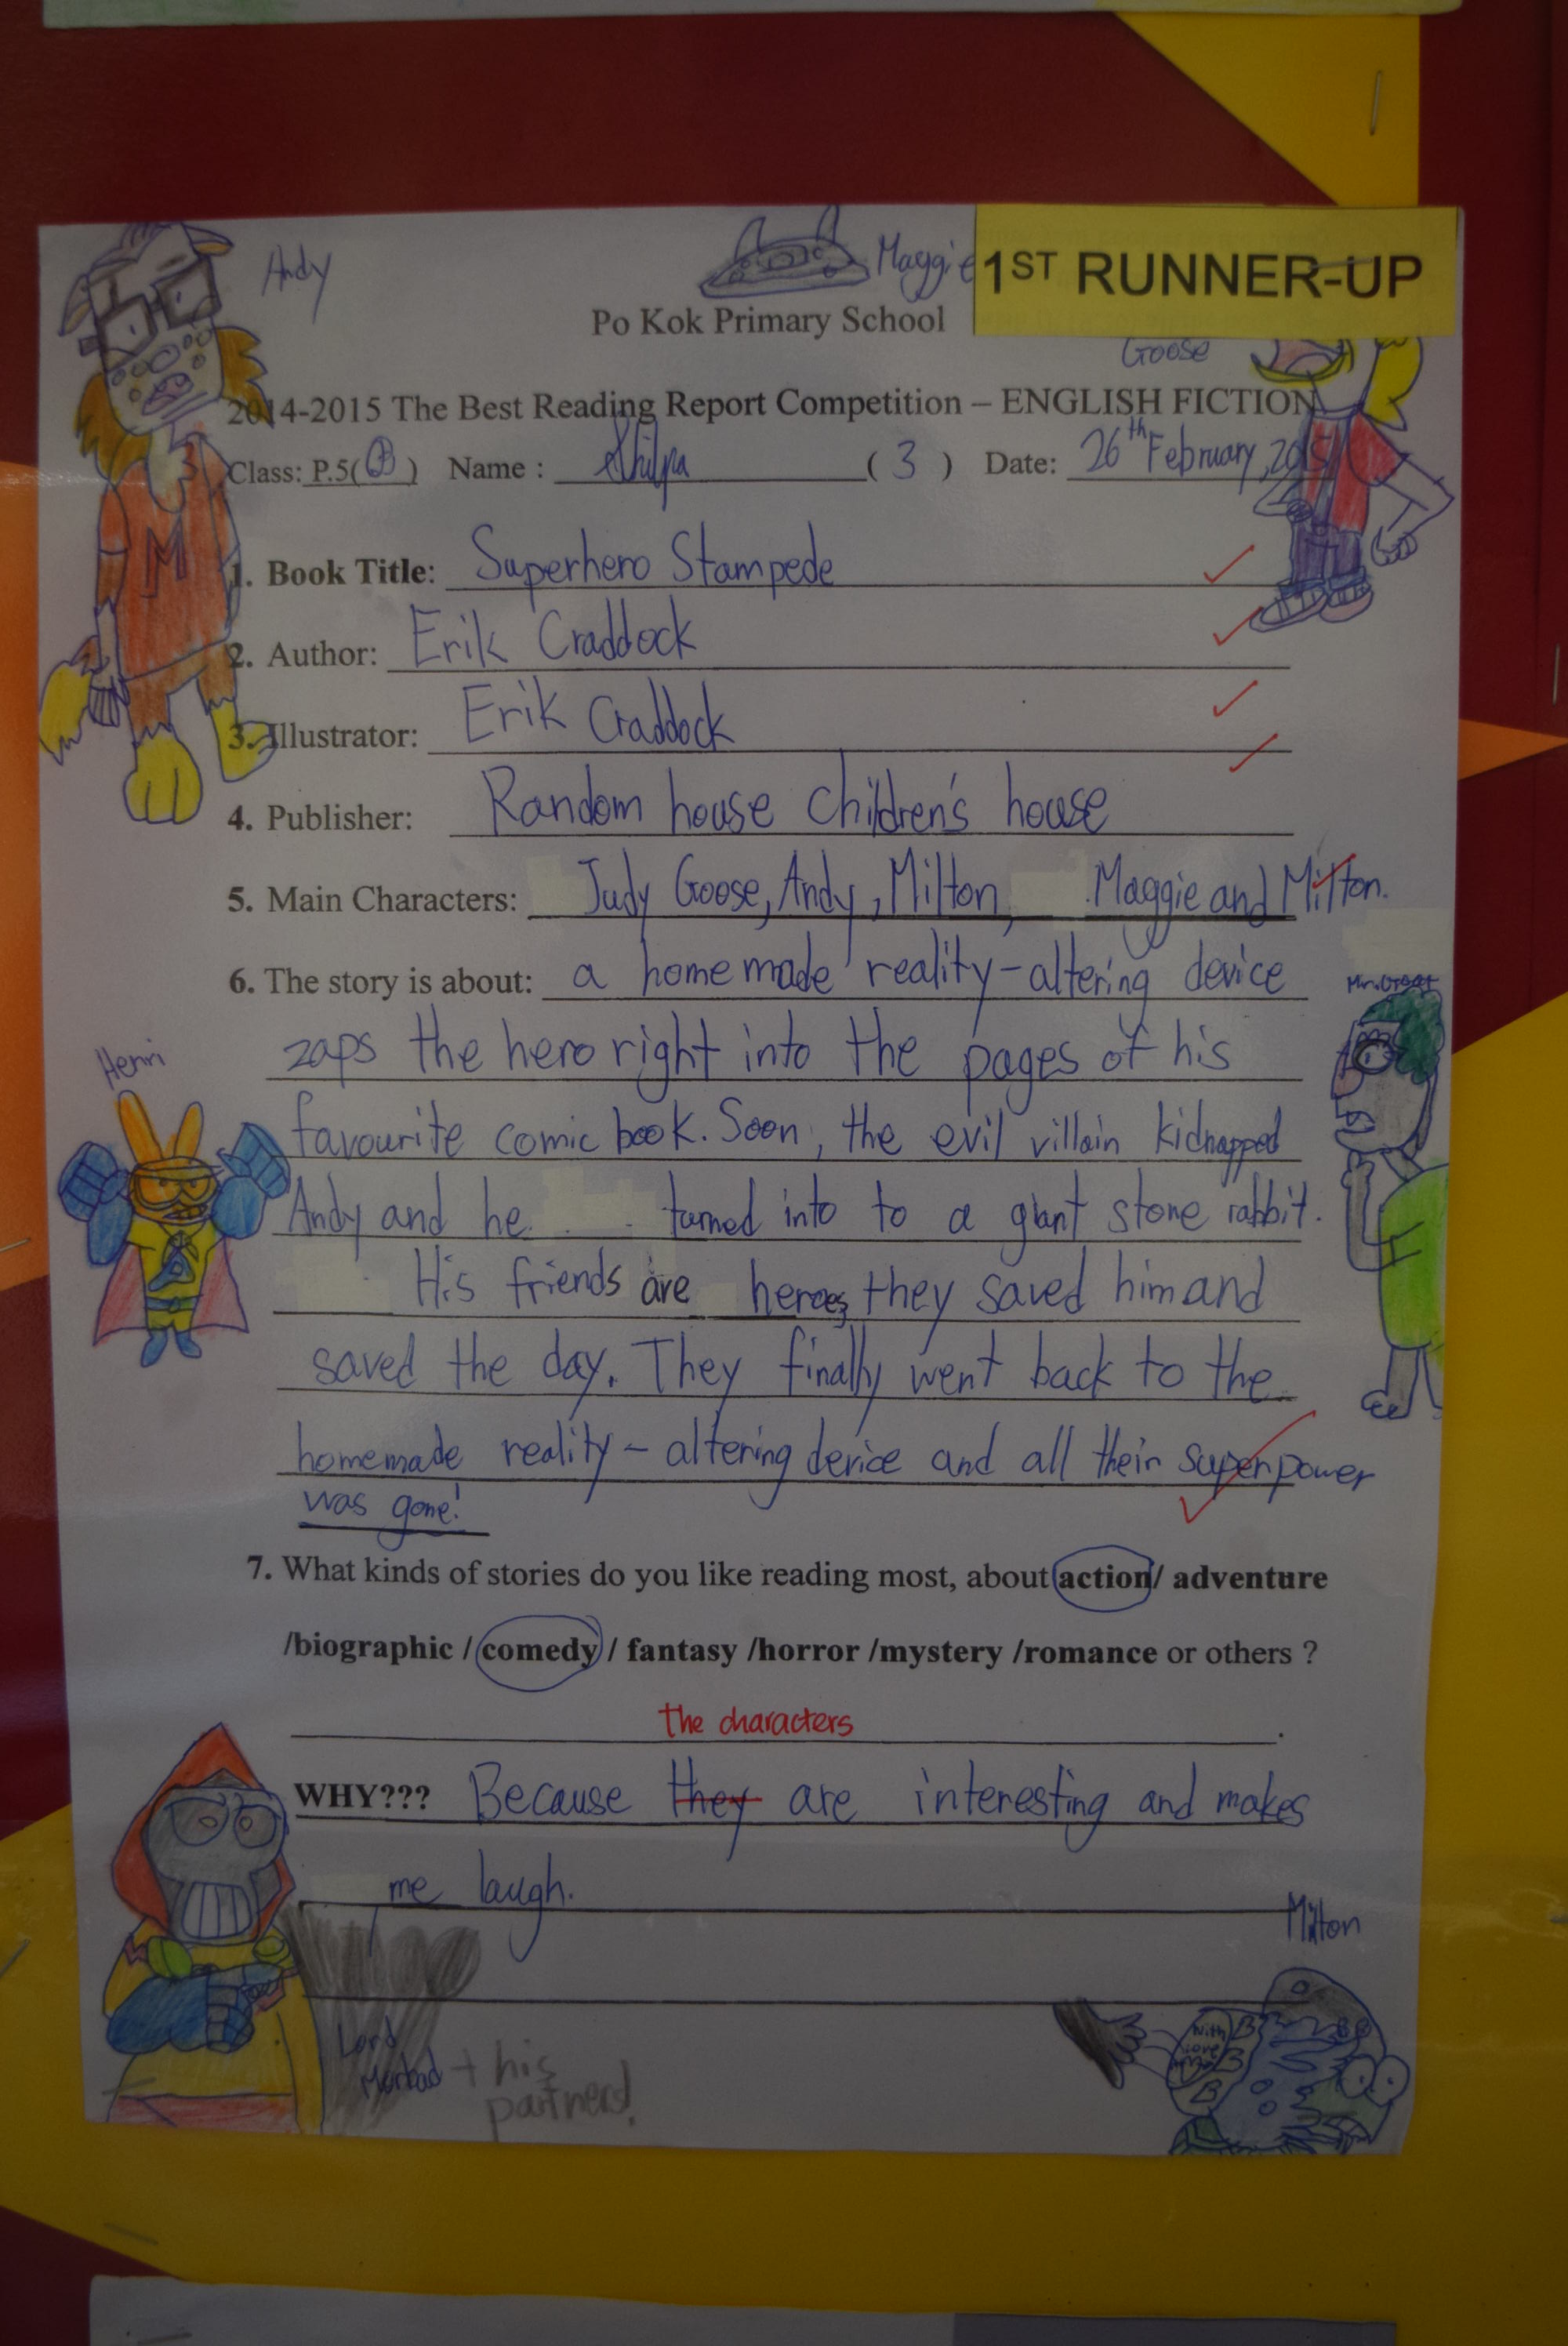 Andy
Maggie
1ST RUNNER-UP
Po Kok Primary School
Goose
2014-2015 The Best Reading Report Competition – ENGLISH FICTION
Class: P.5(B) Name : Shilpa (3) Date: 26th February, 2015
1. Book Title: Superhero Stampede
2. Author: Erik Craddock
3. Illustrator: Erik Craddock
4. Publisher: Random house children's house
5. Main Characters: Judy Goose, Andy, Milton, Maggie and Milton.
6. The story is about: a homemade reality-altering device
Mr. Great
zaps the hero right into the pages of his
Henri
favourite comic book. Soon, the evil villain kidnapped
Andy and he turned into to a giant stone rabbit.
His friends are heroes, they saved him and
saved the day. They finally went back to the
homemade reality-altering device and all their superpower
was gone!
7. What kinds of stories do you like reading most, about action/ adventure
/biographic / comedy / fantasy /horror /mystery /romance or others ?
the characters
.
WHY??? Because they are interesting and makes
me laugh.
Milton
With
love
Lord
Morbad + his
partners!
M